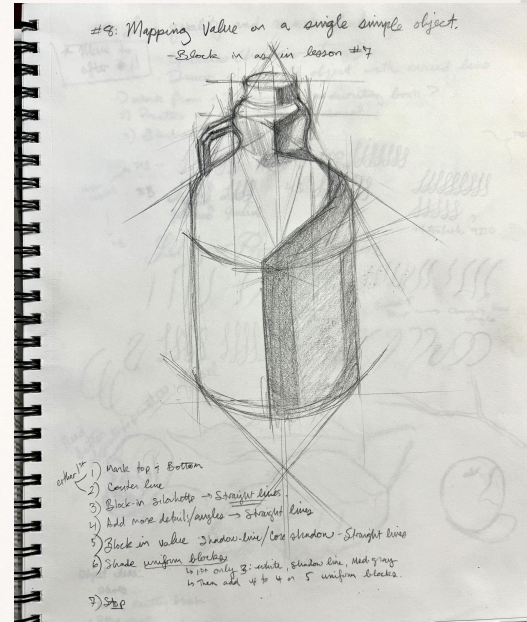 #8: Mapping Value on a single simple object.
- Block in as in lesson #7
either 1st
1) Mark top & Bottom
2) Center line
3) Block-in Silohette → Straight lines
4) Add more details/angles → Straight lines
5) Block in value Shadow-line/Core shadow - Straight lines
6) Shade uniform blocks
↳ 1st only 3: white, Shadow line, Med gray
↳ Then add up to 4 or 5 uniform blocks.
7) Stop